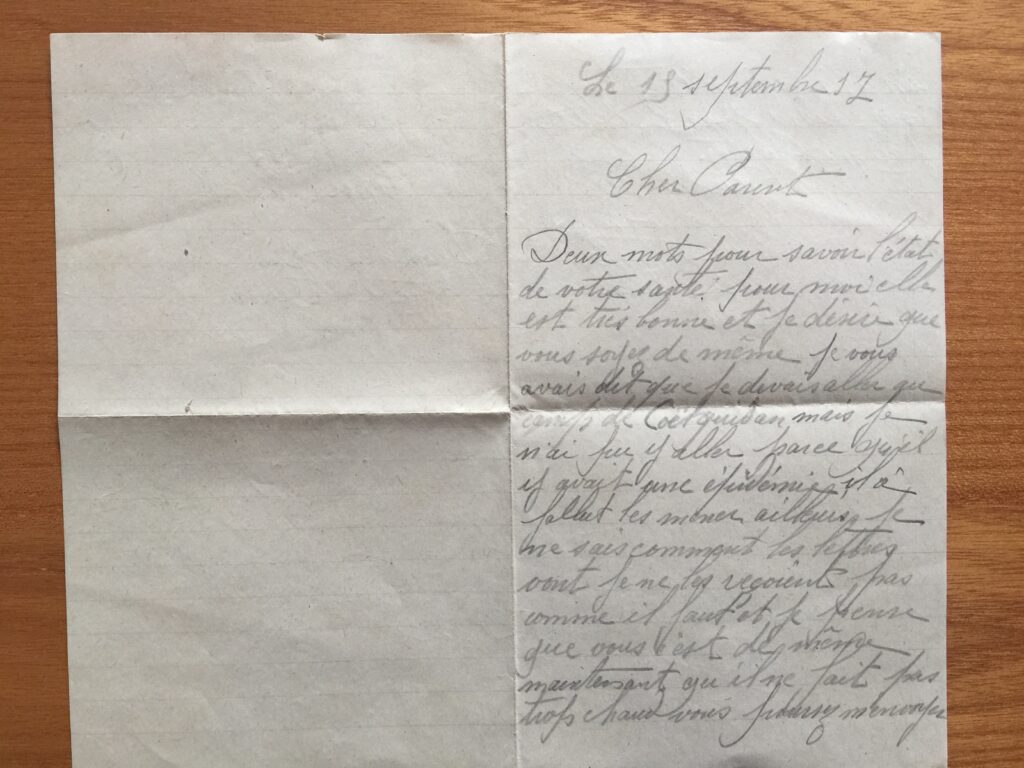 Le 15 septembre 17
Cher Parent
Deux mots pour savoir l'état
de votre santé. pour moi elle
est très bonne et je désire que
vous soyez de même je vous
avais dit que je devais aller au
camp de Coëtquidan mais je
n'ai pu y aller parce qu'il
y avait une épidémie, il à
fallut les mener ailleurs, je
ne sais comment les lettres
vont je ne les reçoient pas
comme il faut et je pense
que vous c'est de même
maintenant qu'il ne fait pas
trop chaud vous pourez m'envoyer